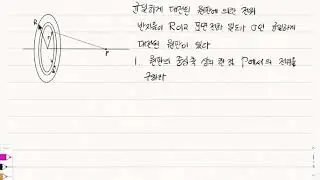 균일하게 대전된 원판에 의한 전위
반지름이 R이고 표면 전하 밀도가 σ인 균일하게
대전된 원판이 있다
1. 원판의 중심축 상의 한 점 P에서의 전위를
구하라
R
P